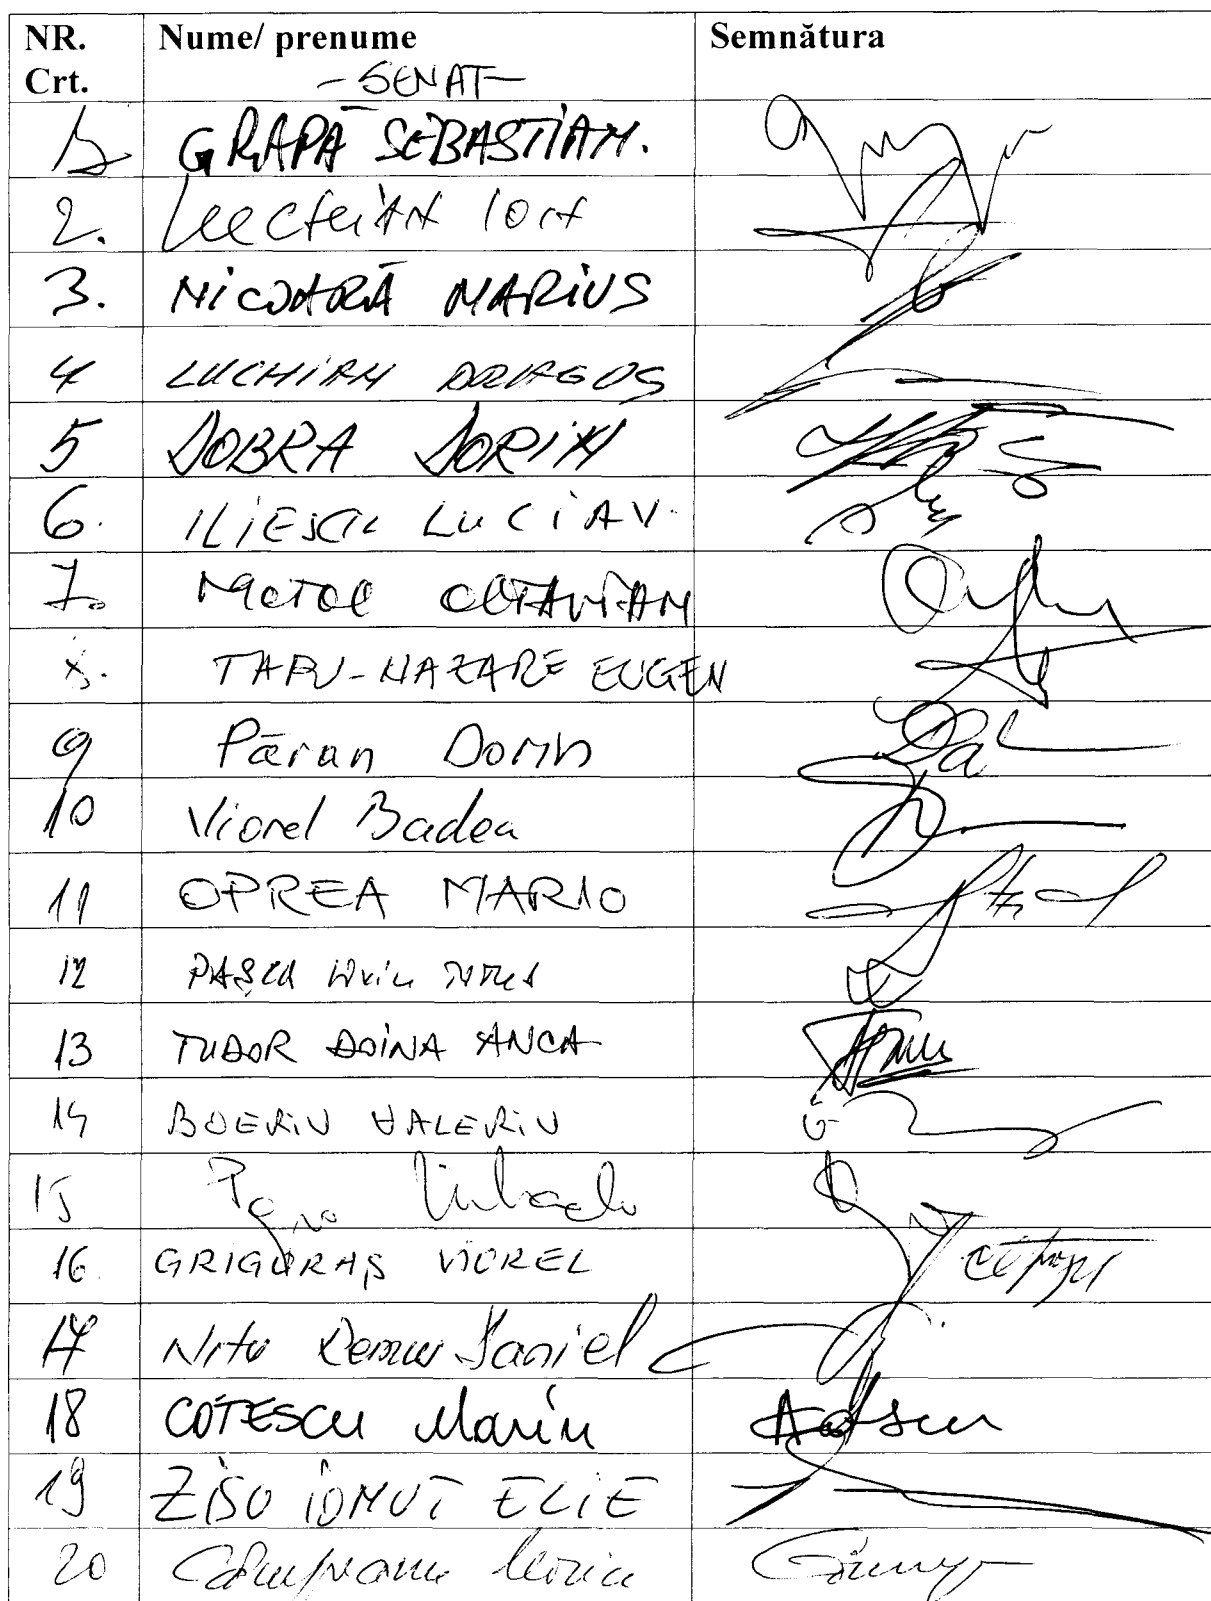 NR. Crt. Nume/ prenume Semnătura
-SENAT-
1. GRAPĂ SEBASTIAN.
2.
3. NICOARĂ MARIUS
4 LUCHIAN DRAGOȘ
5 DOBRA DORIN
6. ILIESCU LUCIAN.
7. MOTOC OCTAVIAN
8. TAPU-NAZARE EUGEN
9 Păran Dorin
10 Viorel Badea
11 OPREA MARIO
12 PAȘCA Liviu TITUS
13 TUDOR DOINA ANCA
14 BOERIU VALERIU
15
16. GRIGORAȘ VIOREL
17 Nitu Remus Daniel
18 COTESCU Marin
19 ZISU IONUȚ ELIE
20 Câmpeanu